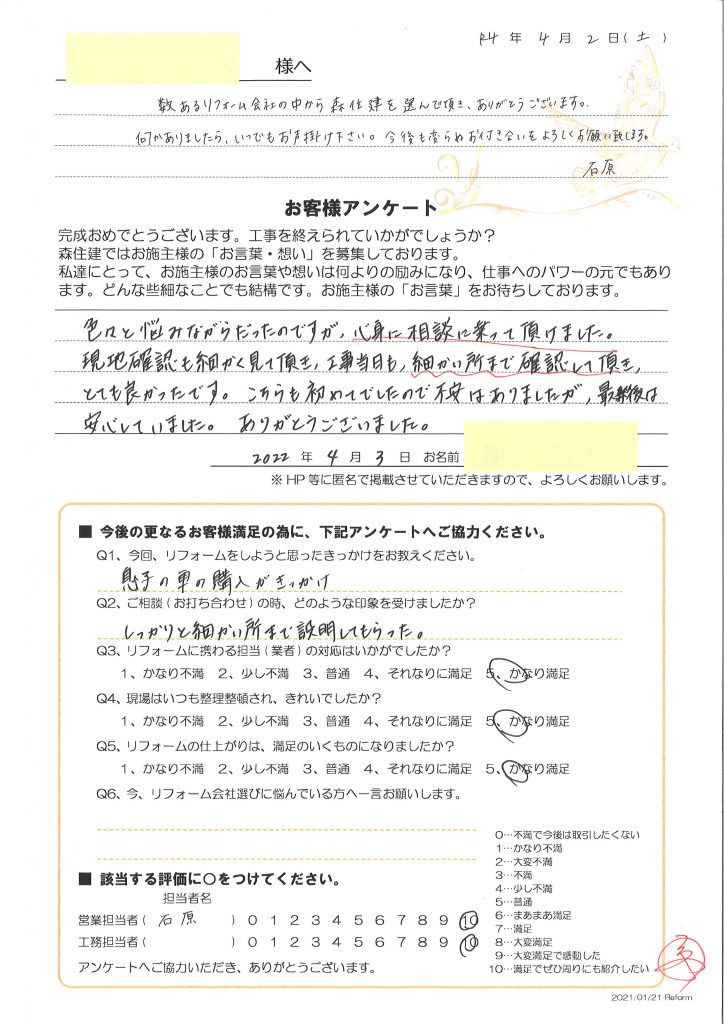 R4 年 4 月 2 日(土)
様へ
数あるリフォーム会社の中から森住建を選んで頂き、ありがとうございます。
何かありましたら、いつでもお声掛け下さい。今後も変らぬお付き合いをよろしくお願い致します。
石原
お客様アンケート
完成おめでとうございます。工事を終えられていかがでしょうか？
森住建ではお施主様の「お言葉・想い」を募集しております。
私達にとって、お施主様のお言葉や想いは何よりの励みになり、仕事へのパワーの元でもあり
ます。どんな些細なことでも結構です。お施主様の「お言葉」をお待ちしております。
色々と悩みながらだったのですが、心身に相談に乗って頂けました。
現地確認も細かく見て頂き、工事当日も、細かい所まで確認して頂き、
とても良かったです。こちらも初めてでしたので不安はありましたが、最終後は
安心していました。ありがとうございました。
2022 年 4 月 3 日 お名前
※HP等に匿名で掲載させていただきますので、よろしくお願いします。
■ 今後の更なるお客様満足の為に、下記アンケートへご協力ください。
Q1、今回、リフォームをしようと思ったきっかけをお教えください。
息子の車の購入がきっかけ
Q2、ご相談(お打ち合わせ)の時、どのような印象を受けましたか？
しっかりと細かい所まで説明してもらった。
Q3、リフォームに携わる担当(業者)の対応はいかがでしたか？
1、かなり不満 2、少し不満 3、普通 4、それなりに満足 5、かなり満足
Q4、現場はいつも整理整頓され、きれいでしたか？
1、かなり不満 2、少し不満 3、普通 4、それなりに満足 5、かなり満足
Q5、リフォームの仕上がりは、満足のいくものになりましたか？
1、かなり不満 2、少し不満 3、普通 4、それなりに満足 5、かなり満足
Q6、今、リフォーム会社選びに悩んでいる方へ一言お願いします。
■ 該当する評価に○をつけてください。
担当者名
営業担当者( 石原 ) 0 1 2 3 4 5 6 7 8 9 10
工務担当者( ) 0 1 2 3 4 5 6 7 8 9 10
アンケートへご協力いただき、ありがとうございます。
0…不満で今後は取引したくない
1…かなり不満
2…大変不満
3…不満
4…少し不満
5…普通
6…まあまあ満足
7…満足
8…大変満足
9…大変満足で感動した
10…満足でぜひ周りにも紹介したい
2021/01/21 Reform